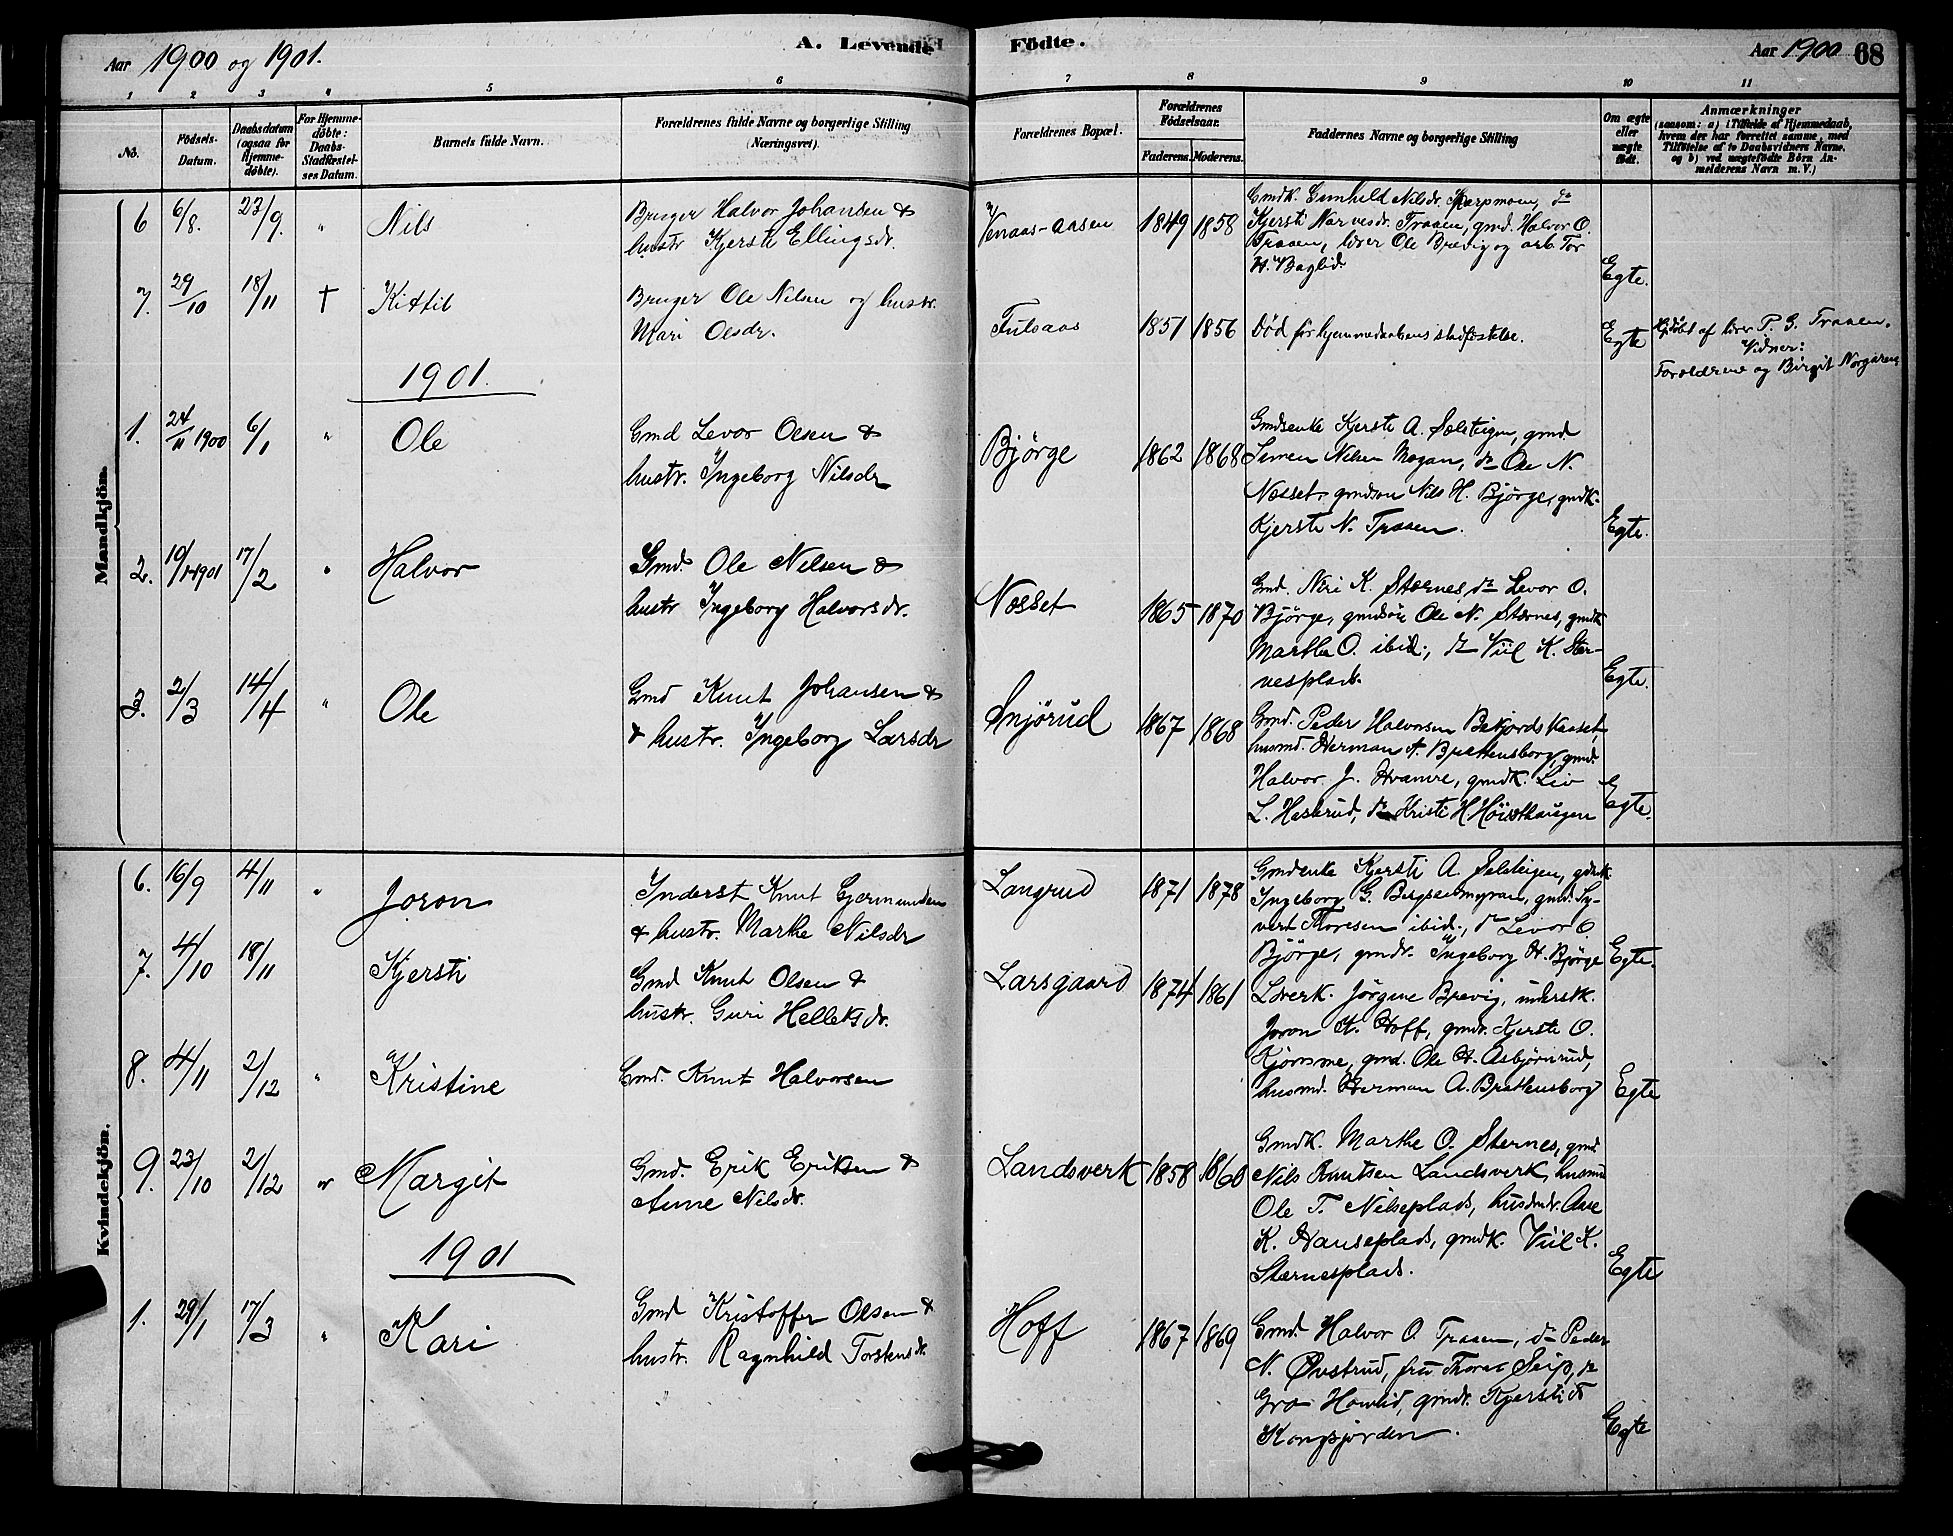 Aar 1900 og 1901.
A. Levende Födte.
Aar 1900
68
1 2 3 4 5 6 7 8 9 10 11
No.
Födsels-Datum.
Daabsdatum (ogsaa for Hjemmedöbte).
For Hjemmedöbte: Daabs-Stadfæstelses Datum.
Barnets fulde Navn.
Forældrenes fulde Navne og borgerlige Stilling (Næringsvei).
Forældrenes Bopæl.
Forældrenes Födselsaar.
Faderens. Moderens.
Faddernes Navne og borgerlige Stilling
Om ægte eller uægte födt.
Anmærkninger
(saasom: a) i Tilfælde af Hjemmedaab, hvem der har forrettet samme, med Tilföielse af to Daabsvidners Navne, og b) ved uægtefödte Börn Anmelderens Navn m. V.)
Mandkjön.
6 6/8. 23/9. " Nils
Bruger Halvor Johansen &
hustr Kjersti Ellingsdr.
Venaas-aasen 1849 1858
Gmdk. Gunhild Nilsdr.
Kjersti Narvesdr. Traaen, gmd. Halvor O.
Traaen, lærer Ole Brevig og arb. Tor
H. Baglid.
Egte.
7. 29/10 18/11 † Kittil
Bruger Ole Nilsen og hustr.
Mari Olsdr.
Fulsaas 1851 1856
Död før hjemmedaabens stadfæstelse.
Egte
Hjdöbt af lærer P. G. Traaen.
Vidner:
Forældrene og Birgit Norgaren
1901.
1. 24/11 1900 6/1 " Ole
Gmd Levor Olsen &
hustr. Ingeborg Nilsdr
Bjørge 1862 1868
Gmdsenke Kjersti A. Sælsteigen, gmd
Simen Nilsen Mogan, do Ole N.
Næsset, gmdsøn Nils H. Bjørge, gmdk.
Kjersti N. Traaen.
Egte.
2. 10/1 1901 17/2 " Halvor
Gmd. Ole Nilsen &
hustr Ingeborg Halvorsdr.
Næsset 1865 1870
Gmd. Niri K. Stærnes, do Levor O.
Bjørge, gmdsøn Ole N. Stærnes, gmdk
Marthe O. ibid., do Viil K. Stær-
nesplads.
Egte.
3. 2/3 14/4 " Ole
Gmd Knut Johansen &
& hustr. Ingeborg Larsdr
Snjørud 1867 1868
Gmd. Peder Halvorsen
husmd. Herman A. Brattensborg, gmd.
Halvor J. Hvamre, gmdk. Liv
L. Haskrud, do Kristi H.
Egte.
Kvindekjön.
6. 16/9 4/11 " Joron
Inderst Knut Gjermundsen
& hustr. Marthe Nilsdr
Langrud 1871 1878
Gmdenke Kjersti A. Sælsteigen,
Ingeborg G. Bergsenmyran, gmd. Sy-
vert Thoresen ibid., do Levor O.
Bjørge, gmdr. Ingeborg H. Bjørge
Egte.
7. 4/10 18/11 Kjersti
Gmd Knut Olsen &
hustr. Guri Helleksdr.
Larsgaard 1874 1861
Lærerk. Jörgine Brevig, inderstk.
Joron K. Hoff, gmdr. Kjersti O.
gmd. Ole H. Asbjörnrud,
husmd. Herman A. Brattensborg
Egte
8. 4/11 2/12 " Kristine
Gmd. Knut Halvorsen
9. 23/10 2/12 " Margit
Gmd. Erik Eriksen &
Anne Nilsdr.
Landsverk 1858 1860
Gmdk. Marthe O. Stærnes, gmd.
Nils Knutsen Landsverk, husmd
Ole T. Nilseplads, husmdr. Aase
K. Hanseplads, gmdk. Viil K.
Stærnesplads.
Egte
1901
1. 29/1 17/3 " Kari
Gmd Kristoffer Olsen &
hustr. Ragnhild Torstensdr.
Hoff 1867 1869
Gmd. Halvor O. Traaen, do Peder
N. Øvstrud, fru Thora Seip,
Gro Howlid, gmdr. Kjersti
Kongsjorden.
Egte